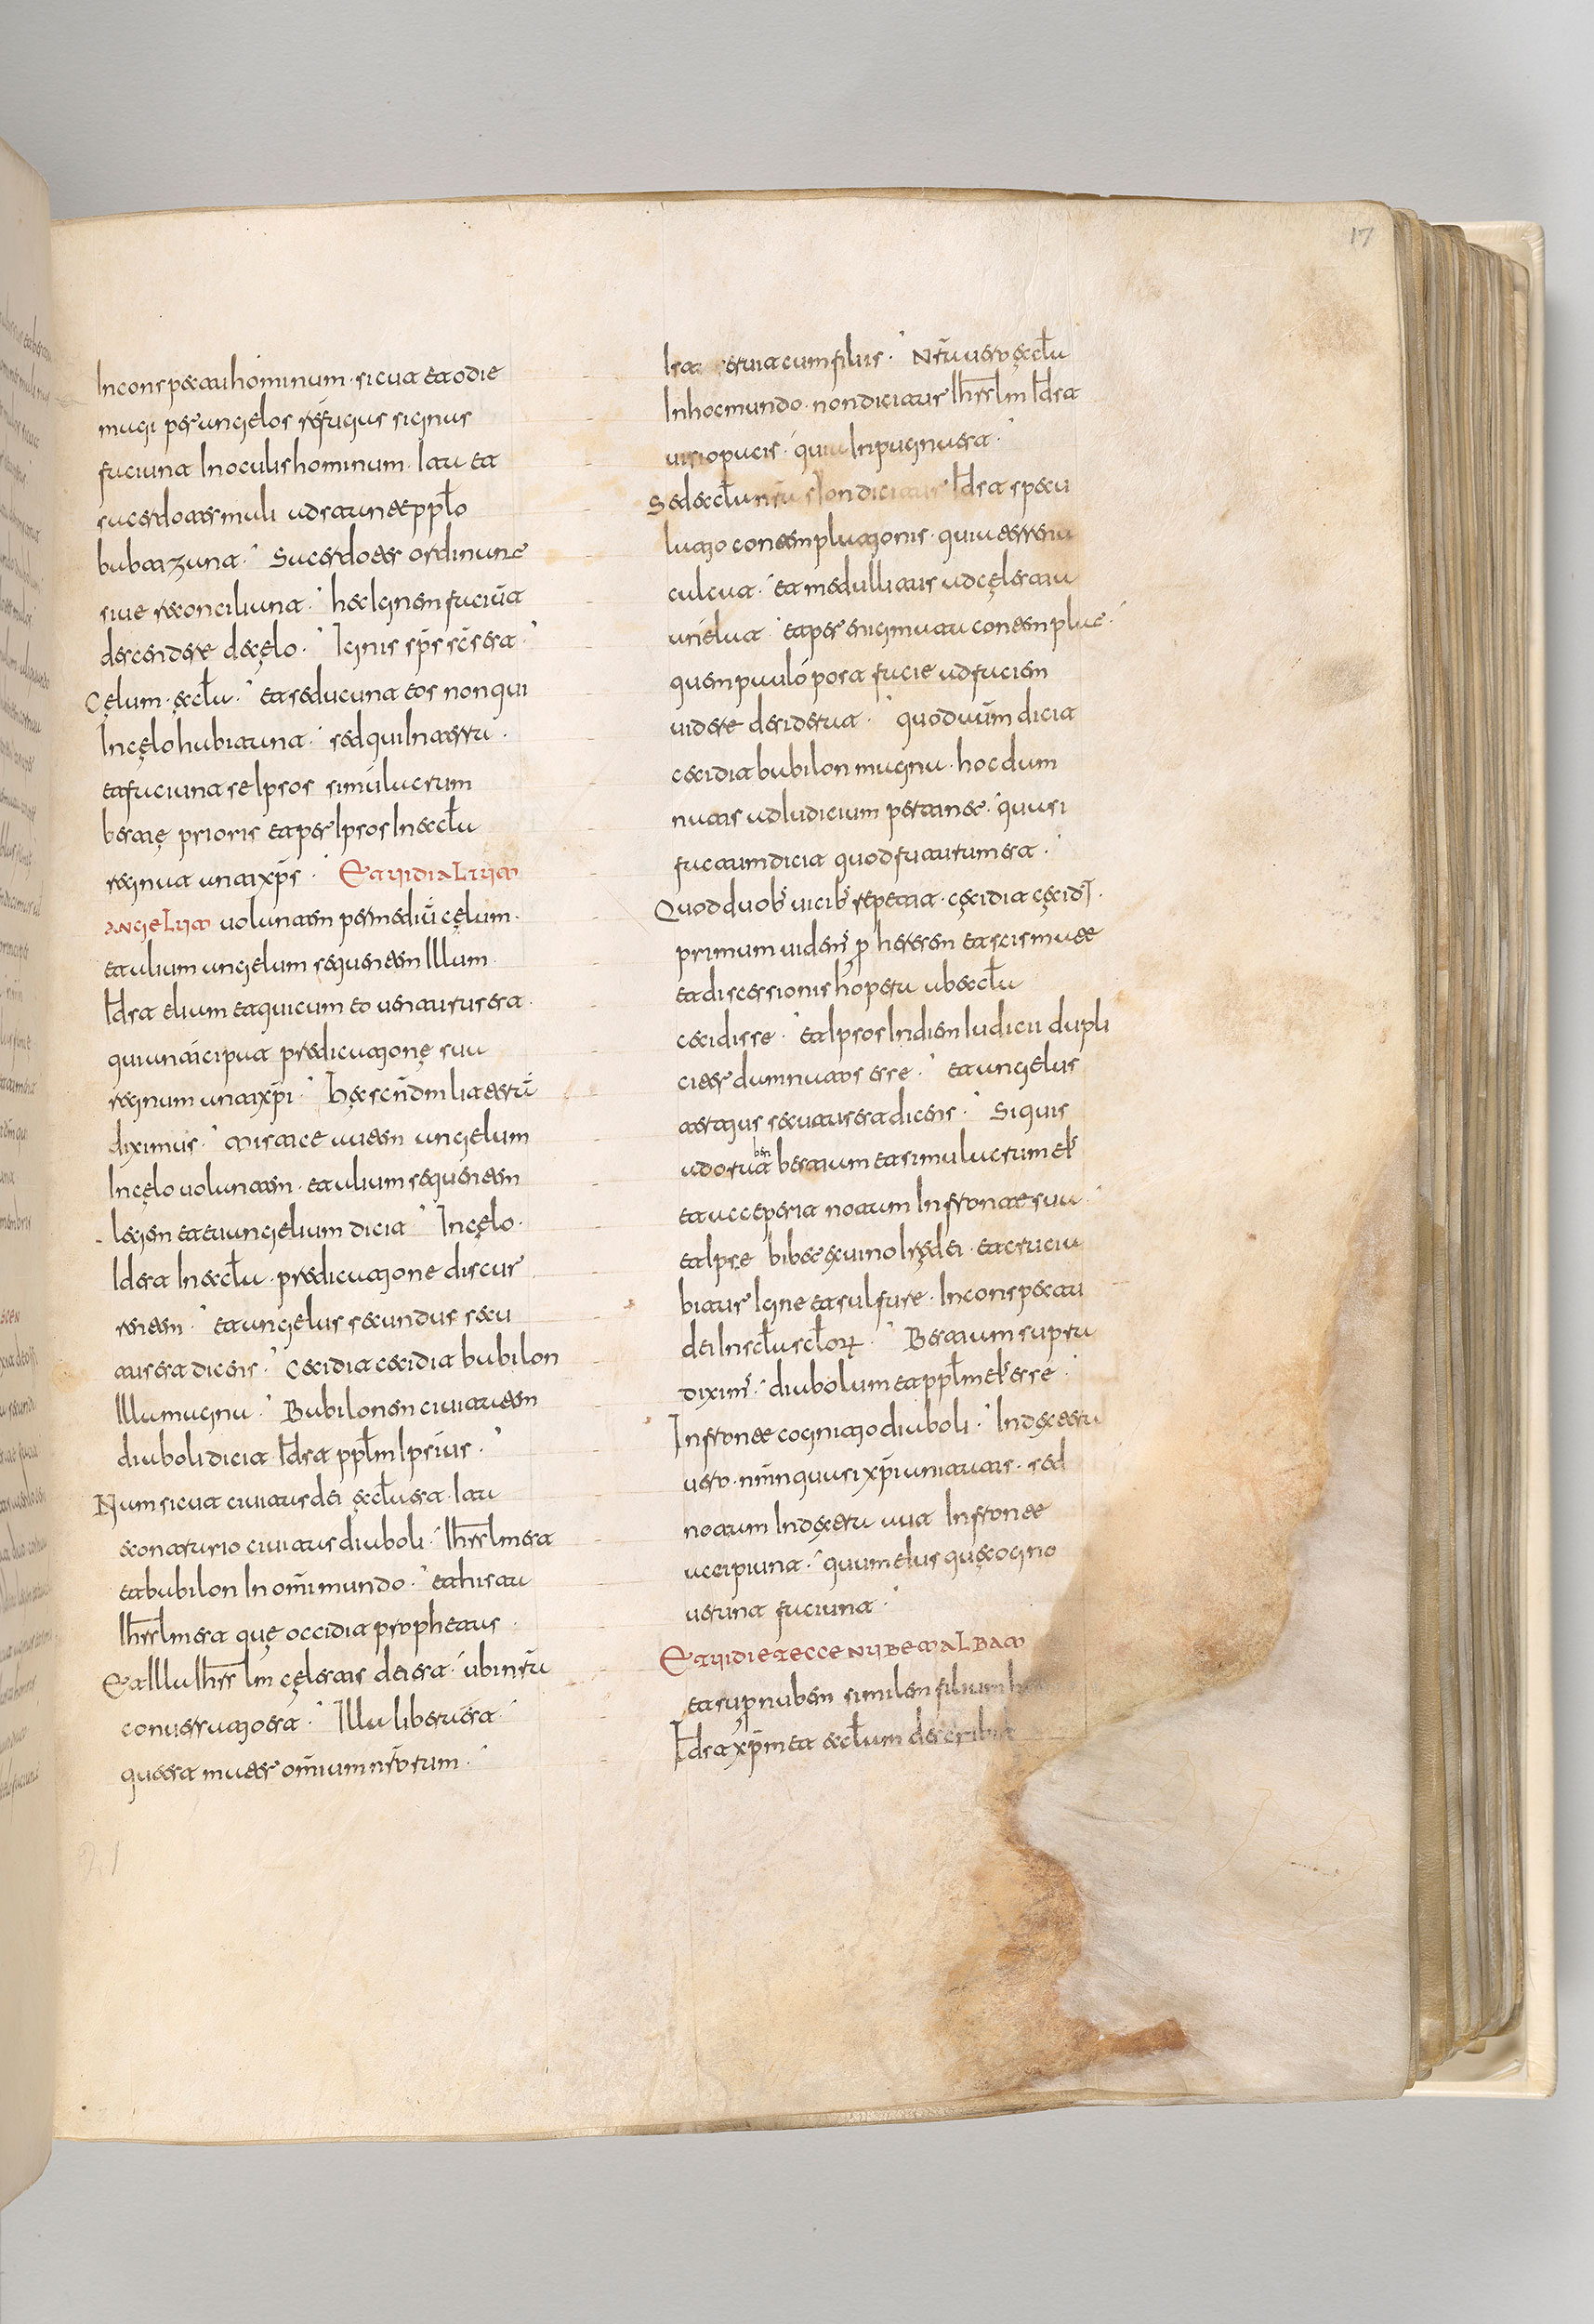 17
In conspectu hominum · sicut et odie
magi per angelos refugas signa
faciunt In oculis hominum · Ita et
sacerdotes mali adstant et pplo
babtizant · Sacerdotes ordinant
sive reconciliant · hec Ignem faciūt
descendere de cęlo · Ignis sp̄s sc̄s est ·
Cęlum · eccl̄a · et seducunt eos non qui
In cęlo habitant · sed qui In terra ·
et faciunt se Ipsos simulacrum
bestię prioris et per Ipsos In eccl̄a
regnat antixp̄s · Et vidi alivm
angelvm volantem per mediū cęlum ·
et alium angelum sequentem Illum
Id est eliam et qui cum eo venturus est ·
qui anticipat predicationę sua
regnum antixp̄i · Hęc scn̄dm litterā
diximus · Mistice autem angelum
In cęlo volantem · et alium sequentem
legem et evangelium dicit · In cęlo ·
Id est In eccl̄a · predicatione discur
rentem · et angelus secundus secu
tus est dicens · Cecidit cecidit babilon
Illa magna · Babilonem civitatem
diaboli dicit · Id est ppl̄m Ipsius ·
Nam sicut civitas dei eccl̄a est · Ita
e contrario civitas diaboli · Ihrslm est
et babilon In omī mundo · et hista
Ihrslm est quę occidit prophetas ·
Et Illa Ihrslm cęlestis dei est · ubi nr̄a
conversatio est · Illa libera est ·
que est mater omīum nr̄orum ·
In hoc mundo · non dicitur Ihrslm Id est
visio pacis · quia Inpugnatur ·
Sed eccl̄a nr̄a sion dicitur Id est specu
latio contemplationis · quia terrena
calcat · et medullitus ad cęlestia
anelat · et per enigmata contemplat ·
quem paulo post facie ad faciem
videre desiderat · quod autem dicit
cecidit babilon magna · hoc dam
natis ad Iudicium pertinet · quasi
factum dicit quod futurum est ·
Quod duob; vicib; repetit · cęcidit cęcid̄ ·
primum viden̄ per heresen et scismate
et discessionis opera ab eccl̄a
cecidisse · et Ipsos In diem Iudicii dupli
citer damnatos esse · et angelus
tertius secutus est dicens · Si quis
adorabit bestiam et simulacrum ei;
et acceperit notam In fronte sua ·
et Ipse bibet ex vino Irę dei · et crucia
bitur Igne et sulfure · In conspectu
dei In scl̄a scl̄orum · Bestiam supra
diximus · diabolum et ppl̄m ei; esse ·
In fronte cognitio diaboli · In dextera
vero · nm̄n quasi xp̄ianitatis · sed
notam In dextera aut In fronte
accipiunt · quum eius quę cogno
verant faciunt ·
Et vidi et ecce nvbem albam
et sup nubem similem filium ho
Id est xp̄m et eccl̄am describit